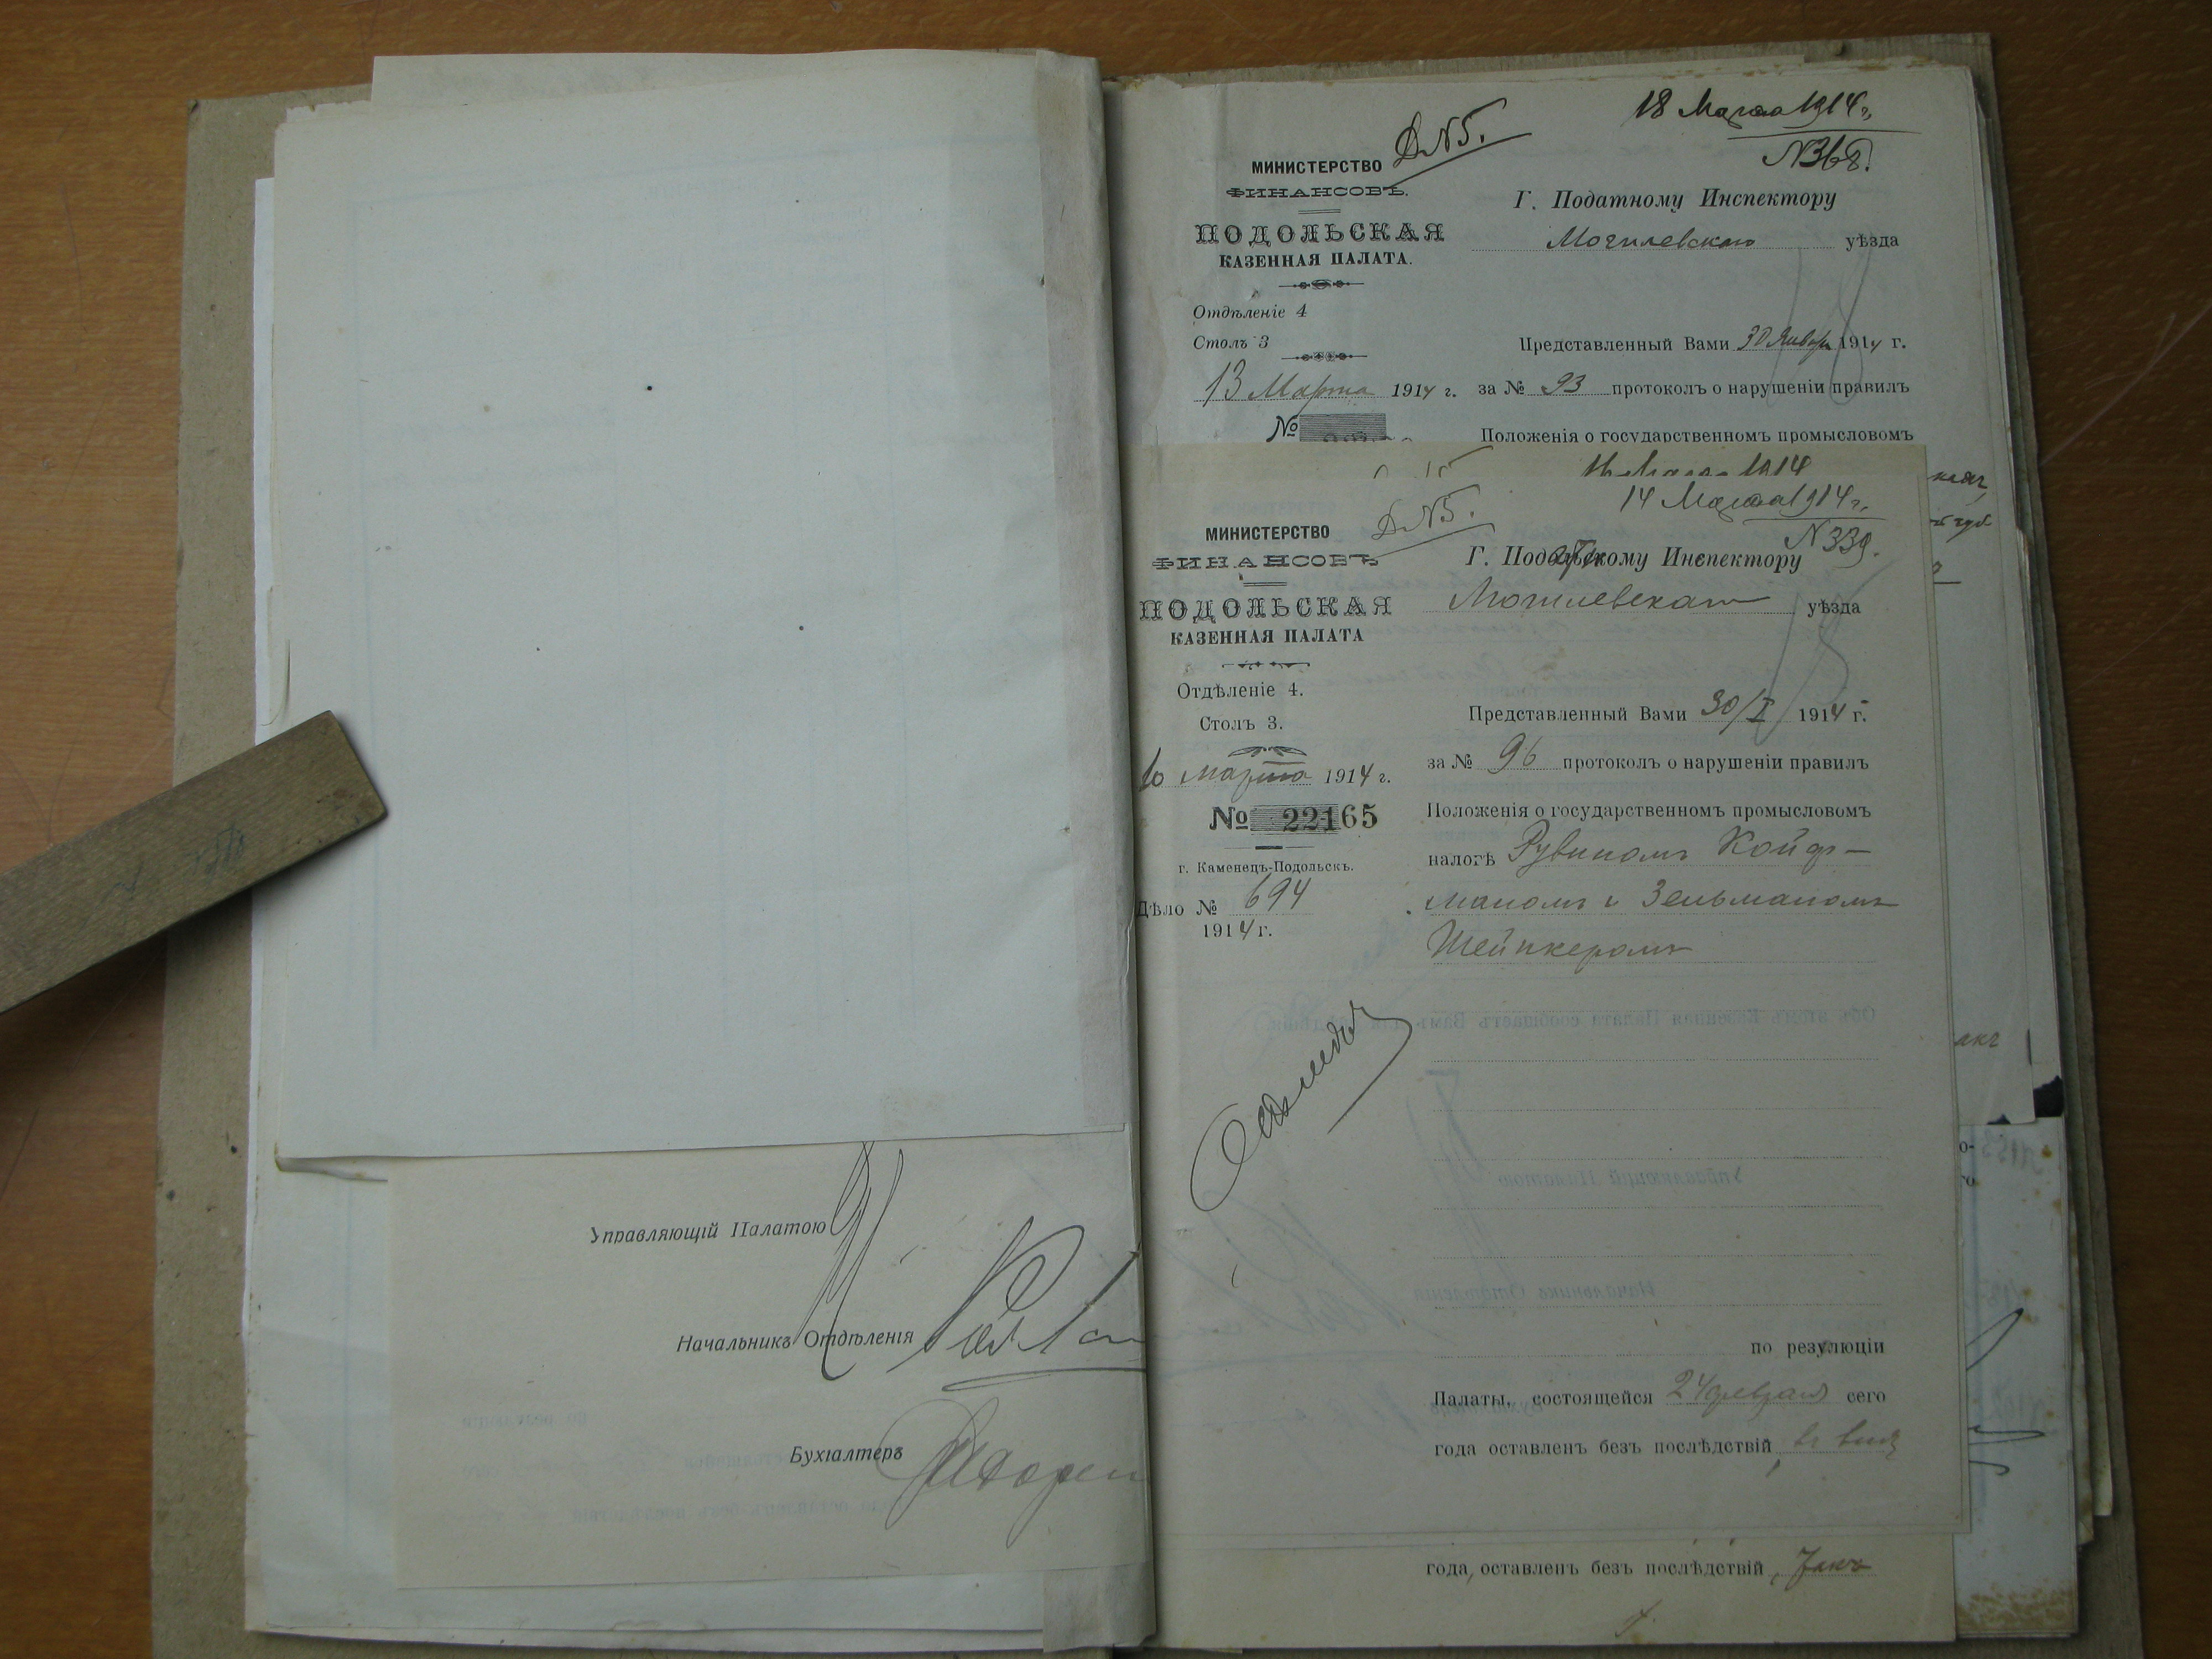 Управляющій Палатою
Начальникъ Отдѣленія
Бухгалтеръ
18 Марта 1914 г.
Д. №5.
№368.
МИНИСТЕРСТВО
ФИНАНСОВЪ.
ПОДОЛЬСКАЯ
КАЗЕННАЯ ПАЛАТА.
Отдѣленіе 4
Столъ 3
13 Марта 1914 г.
№
Г. Податному Инспектору
Могилевскаго уѣзда
Представленный Вами 30 Января 1914 г.
за № 93 протоколъ о нарушеніи правилъ
Положенія о государственномъ промысловомъ
1914
14 Марта 1914 г.
Д. №5.
№339.
МИНИСТЕРСТВО
ФИНАНСОВЪ
ПОДОЛЬСКАЯ
КАЗЕННАЯ ПАЛАТА
Отдѣленіе 4.
Столъ 3.
10 марта 1914 г.
№ 22165
г. Каменецъ-Подольскъ.
Дѣло № 694
1914 г.
Г. Подольскому Инспектору
Могилевскаго уѣзда
Представленный Вами 30/I 1914 г.
за № 96 протоколъ о нарушеніи правилъ
Положенія о государственномъ промысловомъ
налогѣ Рувиномъ Койф-
маномъ и Зельманомъ
Шейнкеромъ
по резулюціи
Палаты, состоящейся 24 февраля сего
года оставленъ безъ послѣдствій, въ виду
года, оставленъ безъ послѣдствій, такъ